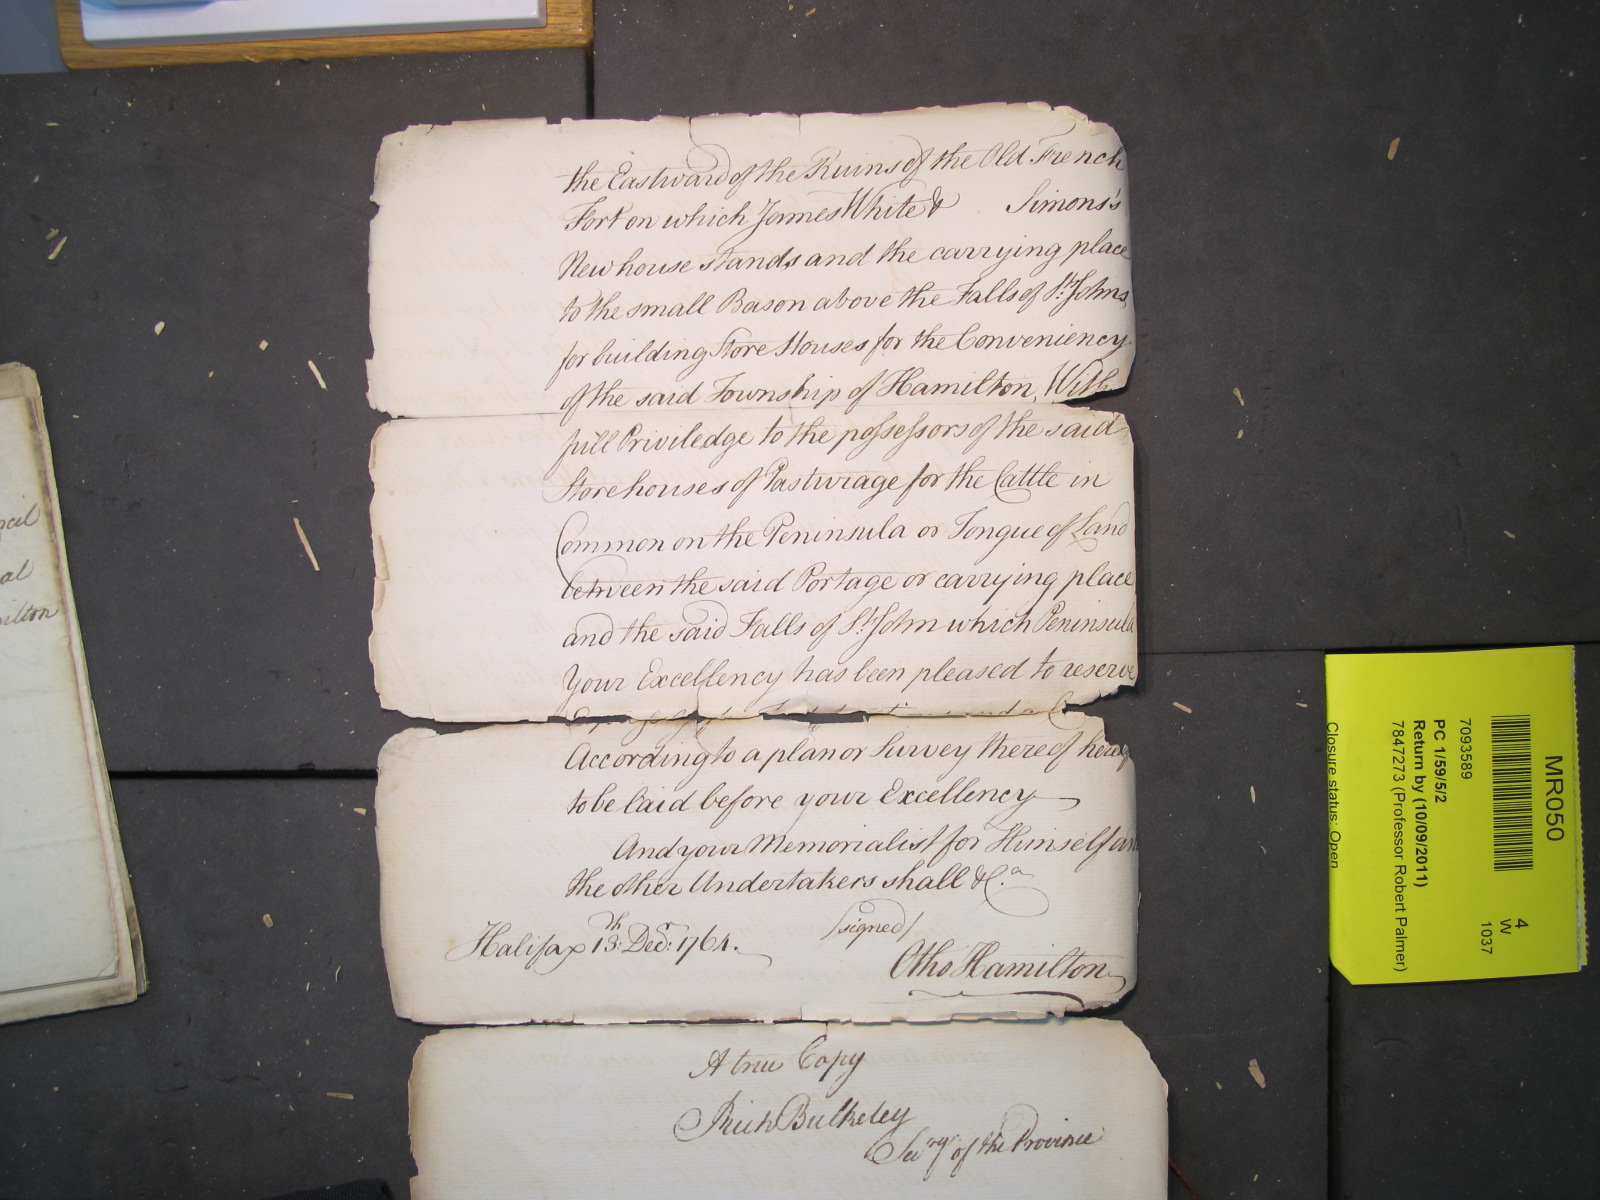 the Eastward of the Ruins of the Old French
Fort on which James White & Simons's
New house stands and the carrying place
to the small Bason above the Falls of St. Johns,
for building Store Houses for the Conveniency
of the said Township of Hamilton, With
full Priviledge to the possessors of the said
Storehouses of Pasturage for the Cattle in
Common on the Peninsula or Tongue of Land
between the said Portage or carrying place
and the said Falls of St. John which Peninsula
Your Excellency has been pleased to reserve
and a
According to a plan or Survey thereof
to be laid before your Excellency
And your Memorialist for Himself an
the other Undertakers shall &C.a
Halifax 13th: Decr: 1764.
/signed/
Otho Hamilton
A true Copy
Rich Bulkeley
Secry of the Province
al
milton
MR050
7093589
PC 1/59/5/2
Return by (10/09/2011)
7847273 (Professor Robert Palmer)
Closure status: Open
4
W
1037